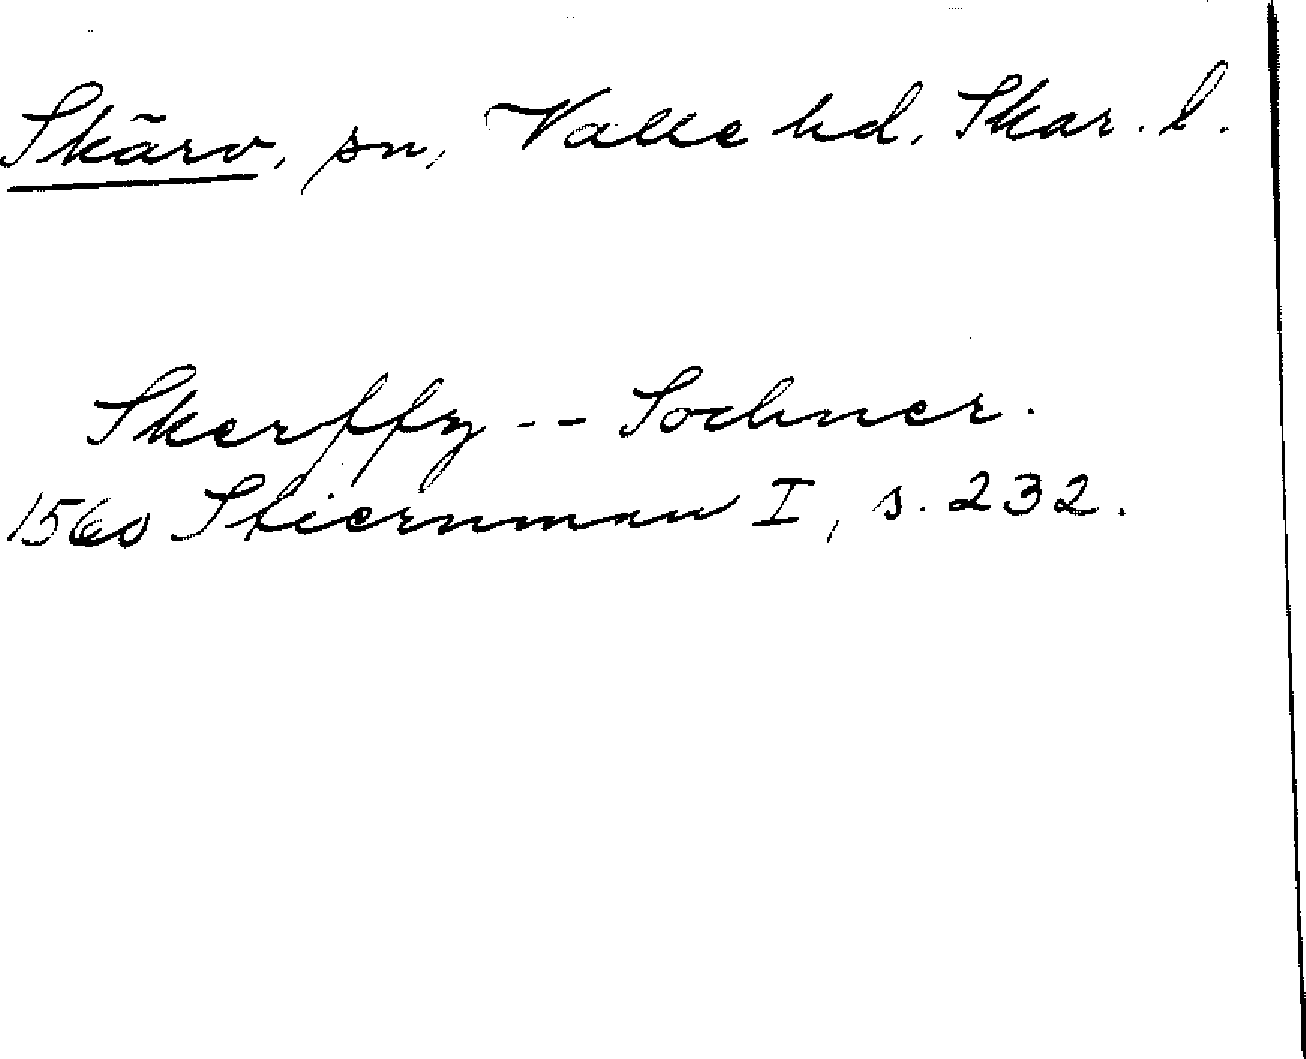 Skärv, sn, Valle hd. Skar. l.
Skerffzy -- Sochner.
1560 Stiernman I, s. 232.